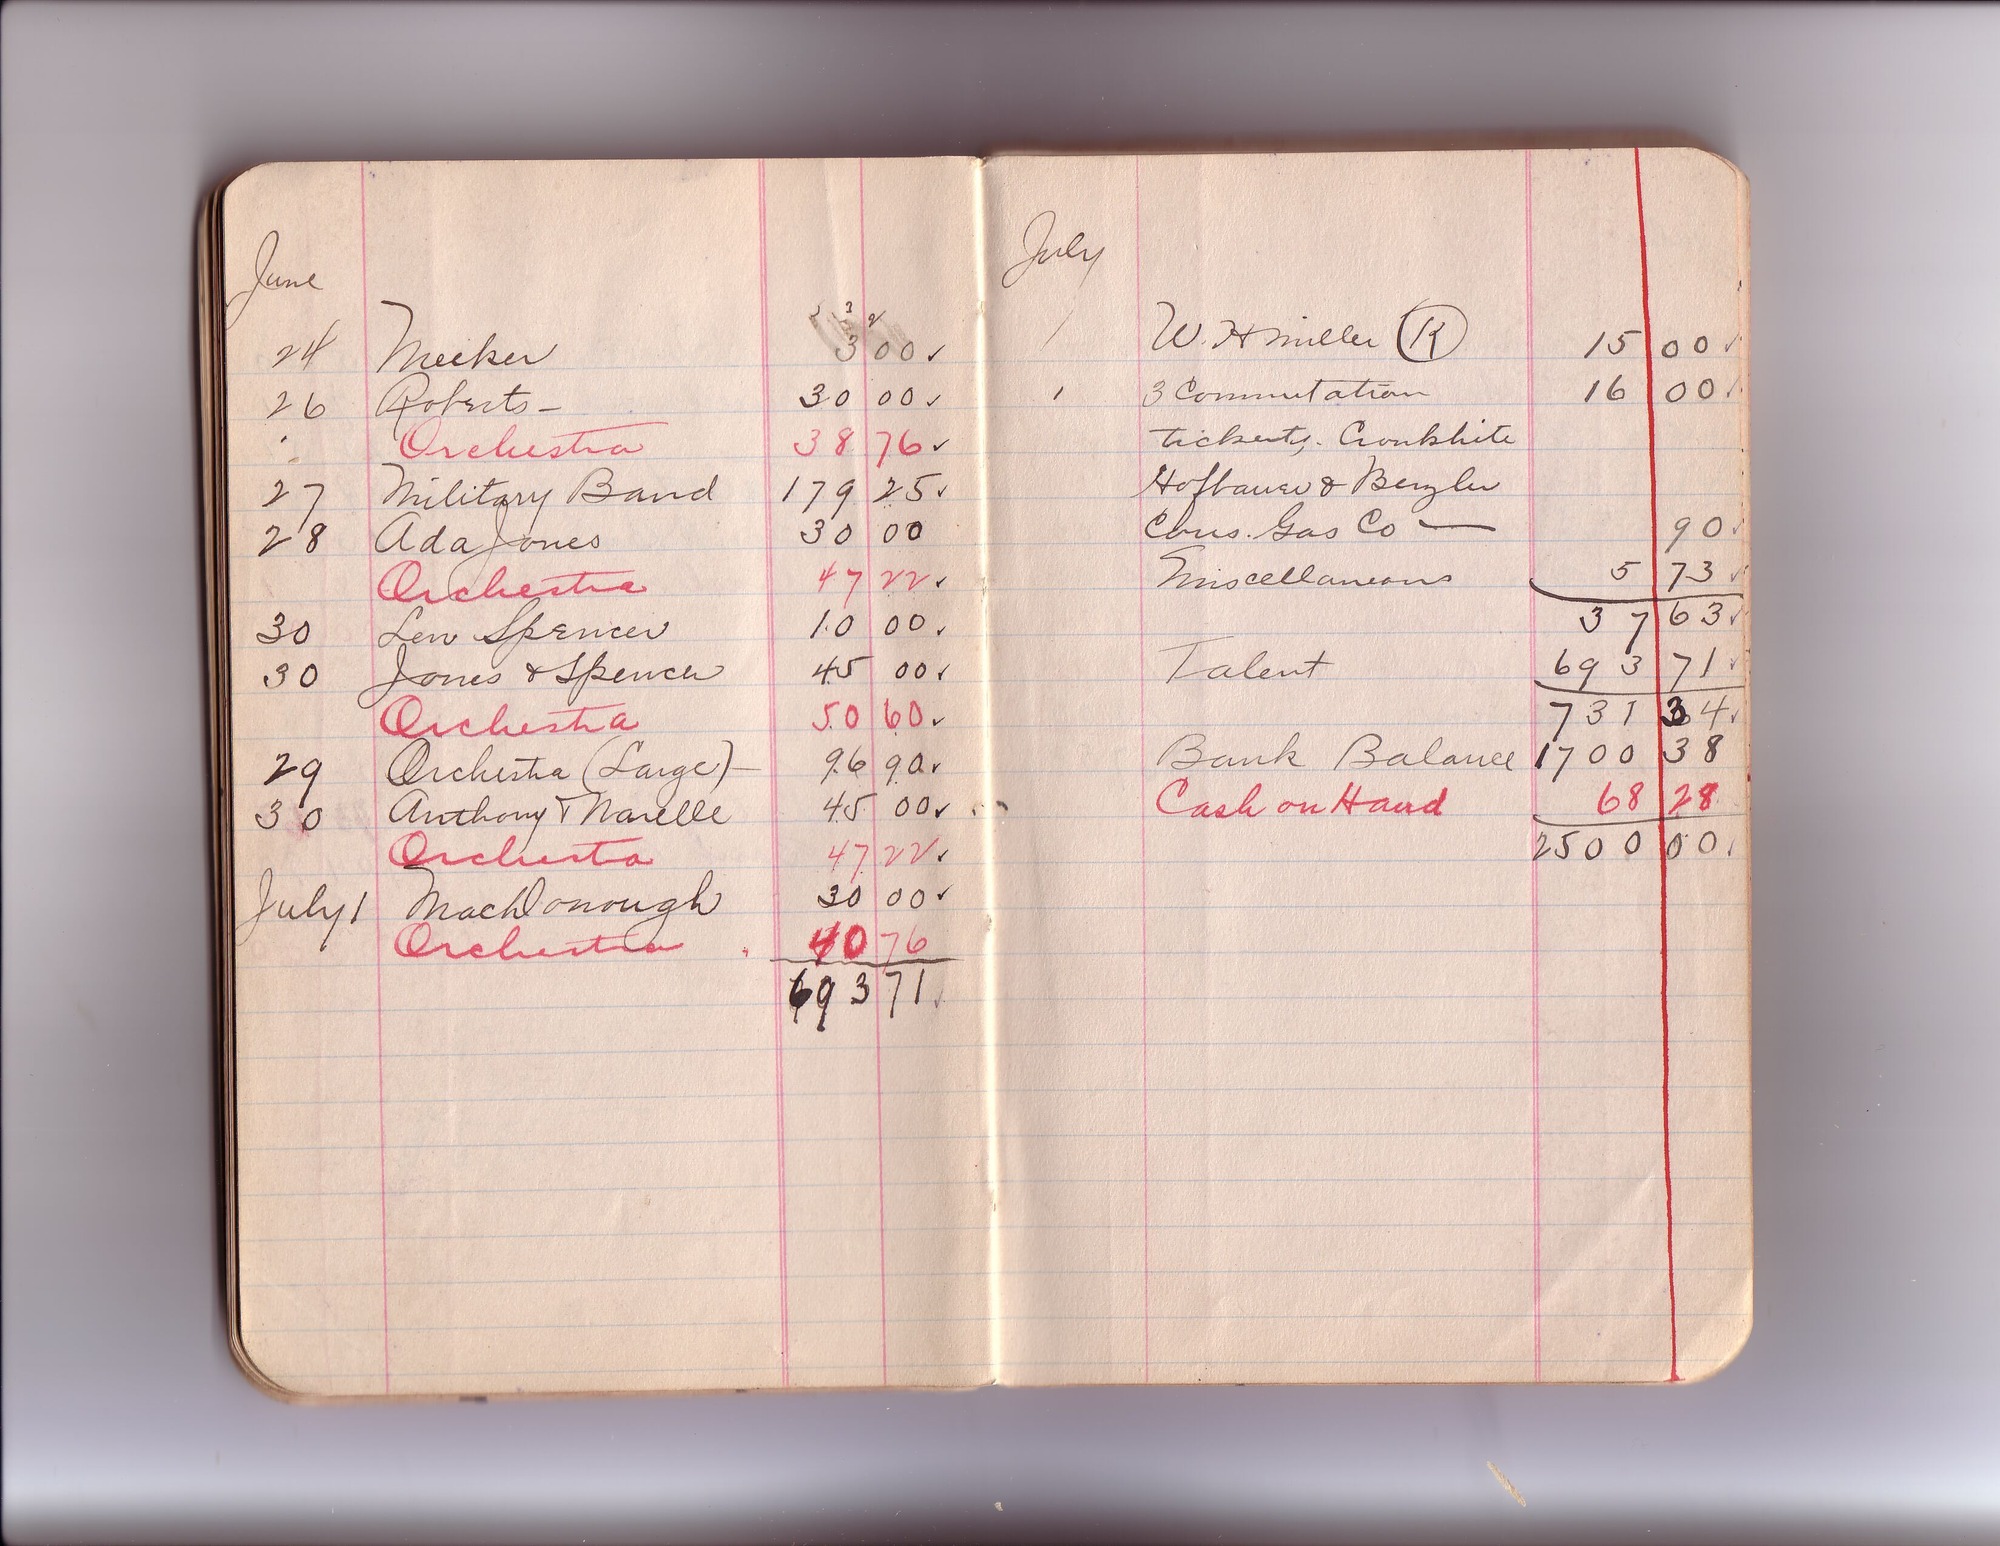 June
24 Meeker 3 00 ✓
26 Roberts - 30 00 ✓
Orchestra 38 76 ✓
27 Military Band 179 25 ✓
28 Ada Jones 30 00
Orchestra 47 22 ✓
30 Len Spencer 10 00 ✓
30 Jones & Spencer 45 00 ✓
Orchestra 50 60 ✓
29 Orchestra (Large) - 96 90 ✓
30 Anthony & Narelle 45 00 ✓
Orchestra 47 22 ✓
July 1 MacDonough 30 00 ✓
Orchestra 40 76
693 71 ✓
July
1 W. H Miller (R) 15 00 ✓
1 3 Commutation 16 00 ✓
tickets, Cronkhite
Hofbauer & Benzler
Cons. Gas Co — 90 ✓
Miscellaneous 5 73 ✓
37 63 ✓
Talent 693 71 ✓
731 34 ✓
Bank Balance 1700 38
Cash on Hand 68 28
2500 00 ✓